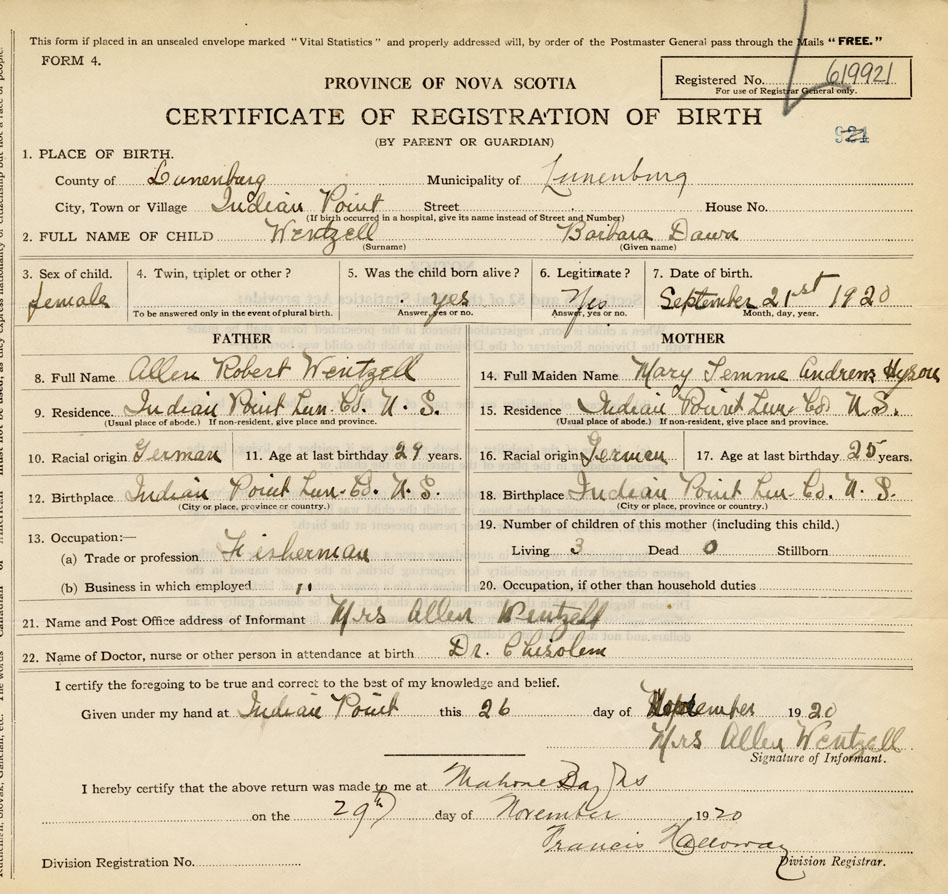 This form if placed in an unsealed envelope marked "Vital Statistics" and properly addressed will, by order of the Postmaster General pass through the Mails "FREE."
FORM 4.
Registered No. 619921
For use of Registrar General only.
PROVINCE OF NOVA SCOTIA
CERTIFICATE OF REGISTRATION OF BIRTH
(BY PARENT OR GUARDIAN)
1. PLACE OF BIRTH.
County of Lunenburg Municipality of Lunenburg
City, Town or Village Indian Point Street House No.
(If birth occurred in a hospital, give its name instead of Street and Number)
2. FULL NAME OF CHILD Wentzell Barbara Dawn
(Surname) (Given name)
3. Sex of child. 4. Twin, triplet or other? 5. Was the child born alive? 6. Legitimate? 7. Date of birth.
female yes Yes September 21st 1920
To be answered only in the event of plural birth. Answer, yes or no. Answer, yes or no. Month, day, year.
FATHER MOTHER
8. Full Name Allen Robert Wentzell 14. Full Maiden Name Mary Hyson
9. Residence. Indian Point Lun. Co. N. S. 15. Residence Indian Point Lun. Co. N. S.
(Usual place of abode.) If non-resident, give place and province. (Usual place of abode.) If non-resident, give place and province.
10. Racial origin German 11. Age at last birthday 29 years. 16. Racial origin German 17. Age at last birthday 25 years.
12. Birthplace Indian Point Lun. Co. N. S. 18. Birthplace Indian Point Lun. Co. N. S.
(City or place, province or country.) (City or place, province or country.)
13. Occupation:— 19. Number of children of this mother (including this child.)
(a) Trade or profession Fisherman Living 3 Dead 0 Stillborn
(b) Business in which employed " 20. Occupation, if other than household duties
21. Name and Post Office address of Informant Mrs Allen Wentzell
22. Name of Doctor, nurse or other person in attendance at birth Dr. Chisolem
I certify the foregoing to be true and correct to the best of my knowledge and belief.
Given under my hand at Indian Point this 26 day of 1920
Mrs Allen Wentzell
Signature of Informant.
I hereby certify that the above return was made to me at Mahone Bay NS
on the 29th day of November 1920
Francis Holloway
Division Registrar.
Division Registration No.